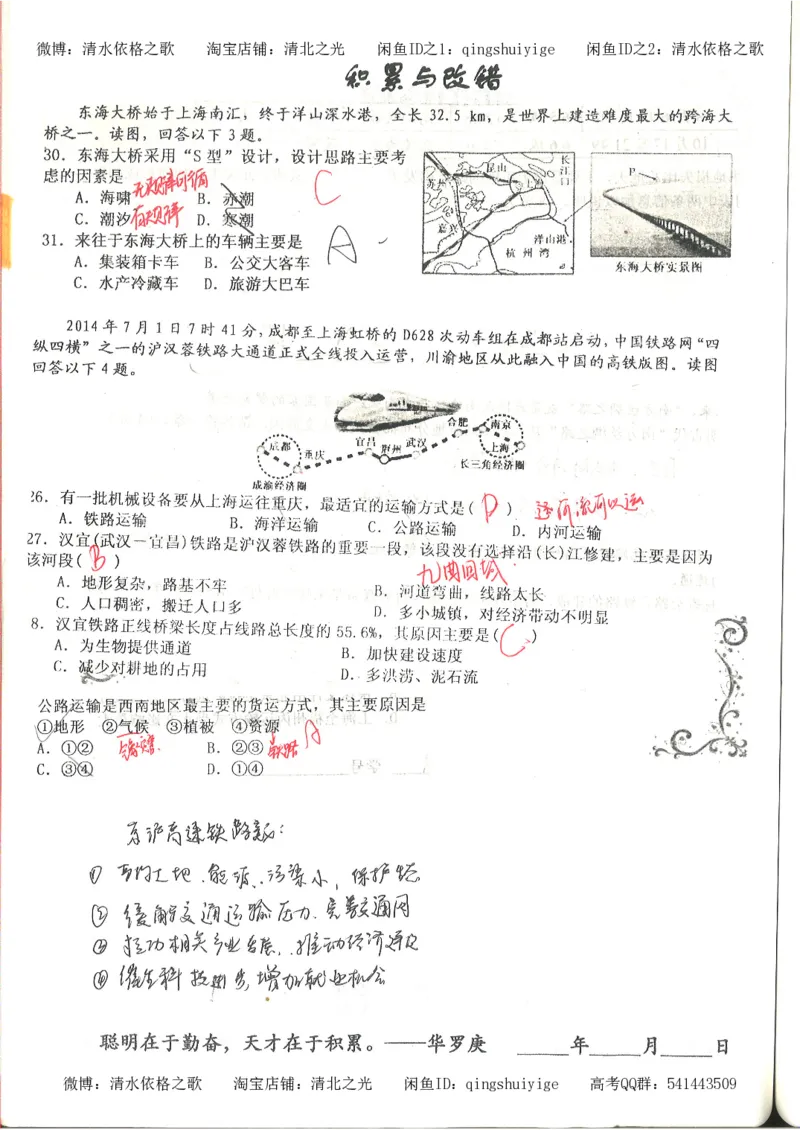 微博：清水依格之歌 淘宝店铺：清北之光 闲鱼ID之1：qingshuiyige 闲鱼ID之2：清水依格之歌
积累与改错
东海大桥始于上海南汇，终于洋山深水港，全长 32.5 km，是世界上建造难度最大的跨海大
桥之一。读图，回答以下 3 题。
30．东海大桥采用“S 型”设计，设计思路主要考
虑的因素是
无规律可循
C
A．海啸 B．赤潮
C．潮汐 有规律 D．寒潮
31．来往于东海大桥上的车辆主要是
A
A．集装箱卡车 B．公交大客车
C．水产冷藏车 D．旅游大巴车
长江口
昆山
苏州
上海
嘉兴
洋山港
杭州湾
P
东海大桥实景图
2014 年 7 月 1 日 7 时 41 分，成都至上海虹桥的 D628 次动车组在成都站启动，中国铁路网“四
纵四横”之一的沪汉蓉铁路大通道正式全线投入运营，川渝地区从此融入中国的高铁版图。读图
回答以下 4 题。
成都 重庆 宜昌 荆州 武汉 合肥 南京 上海
成渝经济圈 长三角经济圈
26．有一批机械设备要从上海运往重庆，最适宜的运输方式是( D )
A．铁路运输 B．海洋运输 C．公路运输 D．内河运输
27．汉宜(武汉－宜昌)铁路是沪汉蓉铁路的重要一段，该段没有选择沿(长)江修建，主要是因为
该河段( B )
九曲回肠
A．地形复杂，路基不牢 B．河道弯曲，线路太长
C．人口稠密，搬迁人口多 D．多小城镇，对经济带动不明显
8．汉宜铁路正线桥梁长度占线路总长度的 55.6%，其原因主要是( C )
A．为生物提供通道 B．加快建设速度
C．减少对耕地的占用 D．多洪涝、泥石流
公路运输是西南地区最主要的货运方式，其主要原因是
①地形 ②气候 ③植被 ④资源
A
A．①② B．②③ 铁路
C．③④ D．①④
京沪高速铁路
① 节约土地、能源、污染小，保护
② 缓解交通运输压力、完善交通网
③ 拉动相关产业发展、推动经济
④ 科技进步，增加就业机会
聪明在于勤奋，天才在于积累。——华罗庚 ____年____月____日
微博：清水依格之歌 淘宝店铺：清北之光 闲鱼ID：qingshuiyige 高考QQ群：541443509